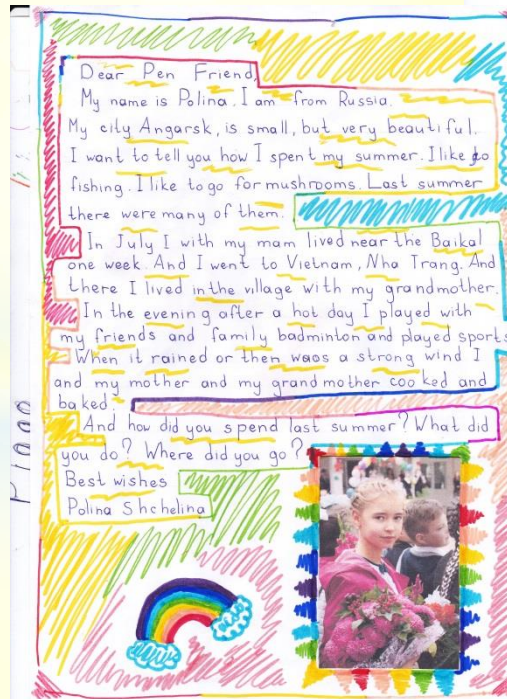 Dear Pen Friend,
My name is Polina. I am from Russia.
My city Angarsk, is small, but very beautiful.
I want to tell you how I spent my summer. I like to
fishing. I like to go for mushrooms. Last summer
there were many of them.
In July I with my mam lived near the Baikal
one week. And I went to Vietnam, Nha Trang. And
there I lived in the village with my grandmother.
In the evening after a hot day I played with
my friends and family badminton and played sports
When it rained or then was a strong wind I
and my mother and my grandmother cooked and
baked.
And how did you spend last summer? What did
you do? Where did you go?
Best wishes
Polina Shchelina